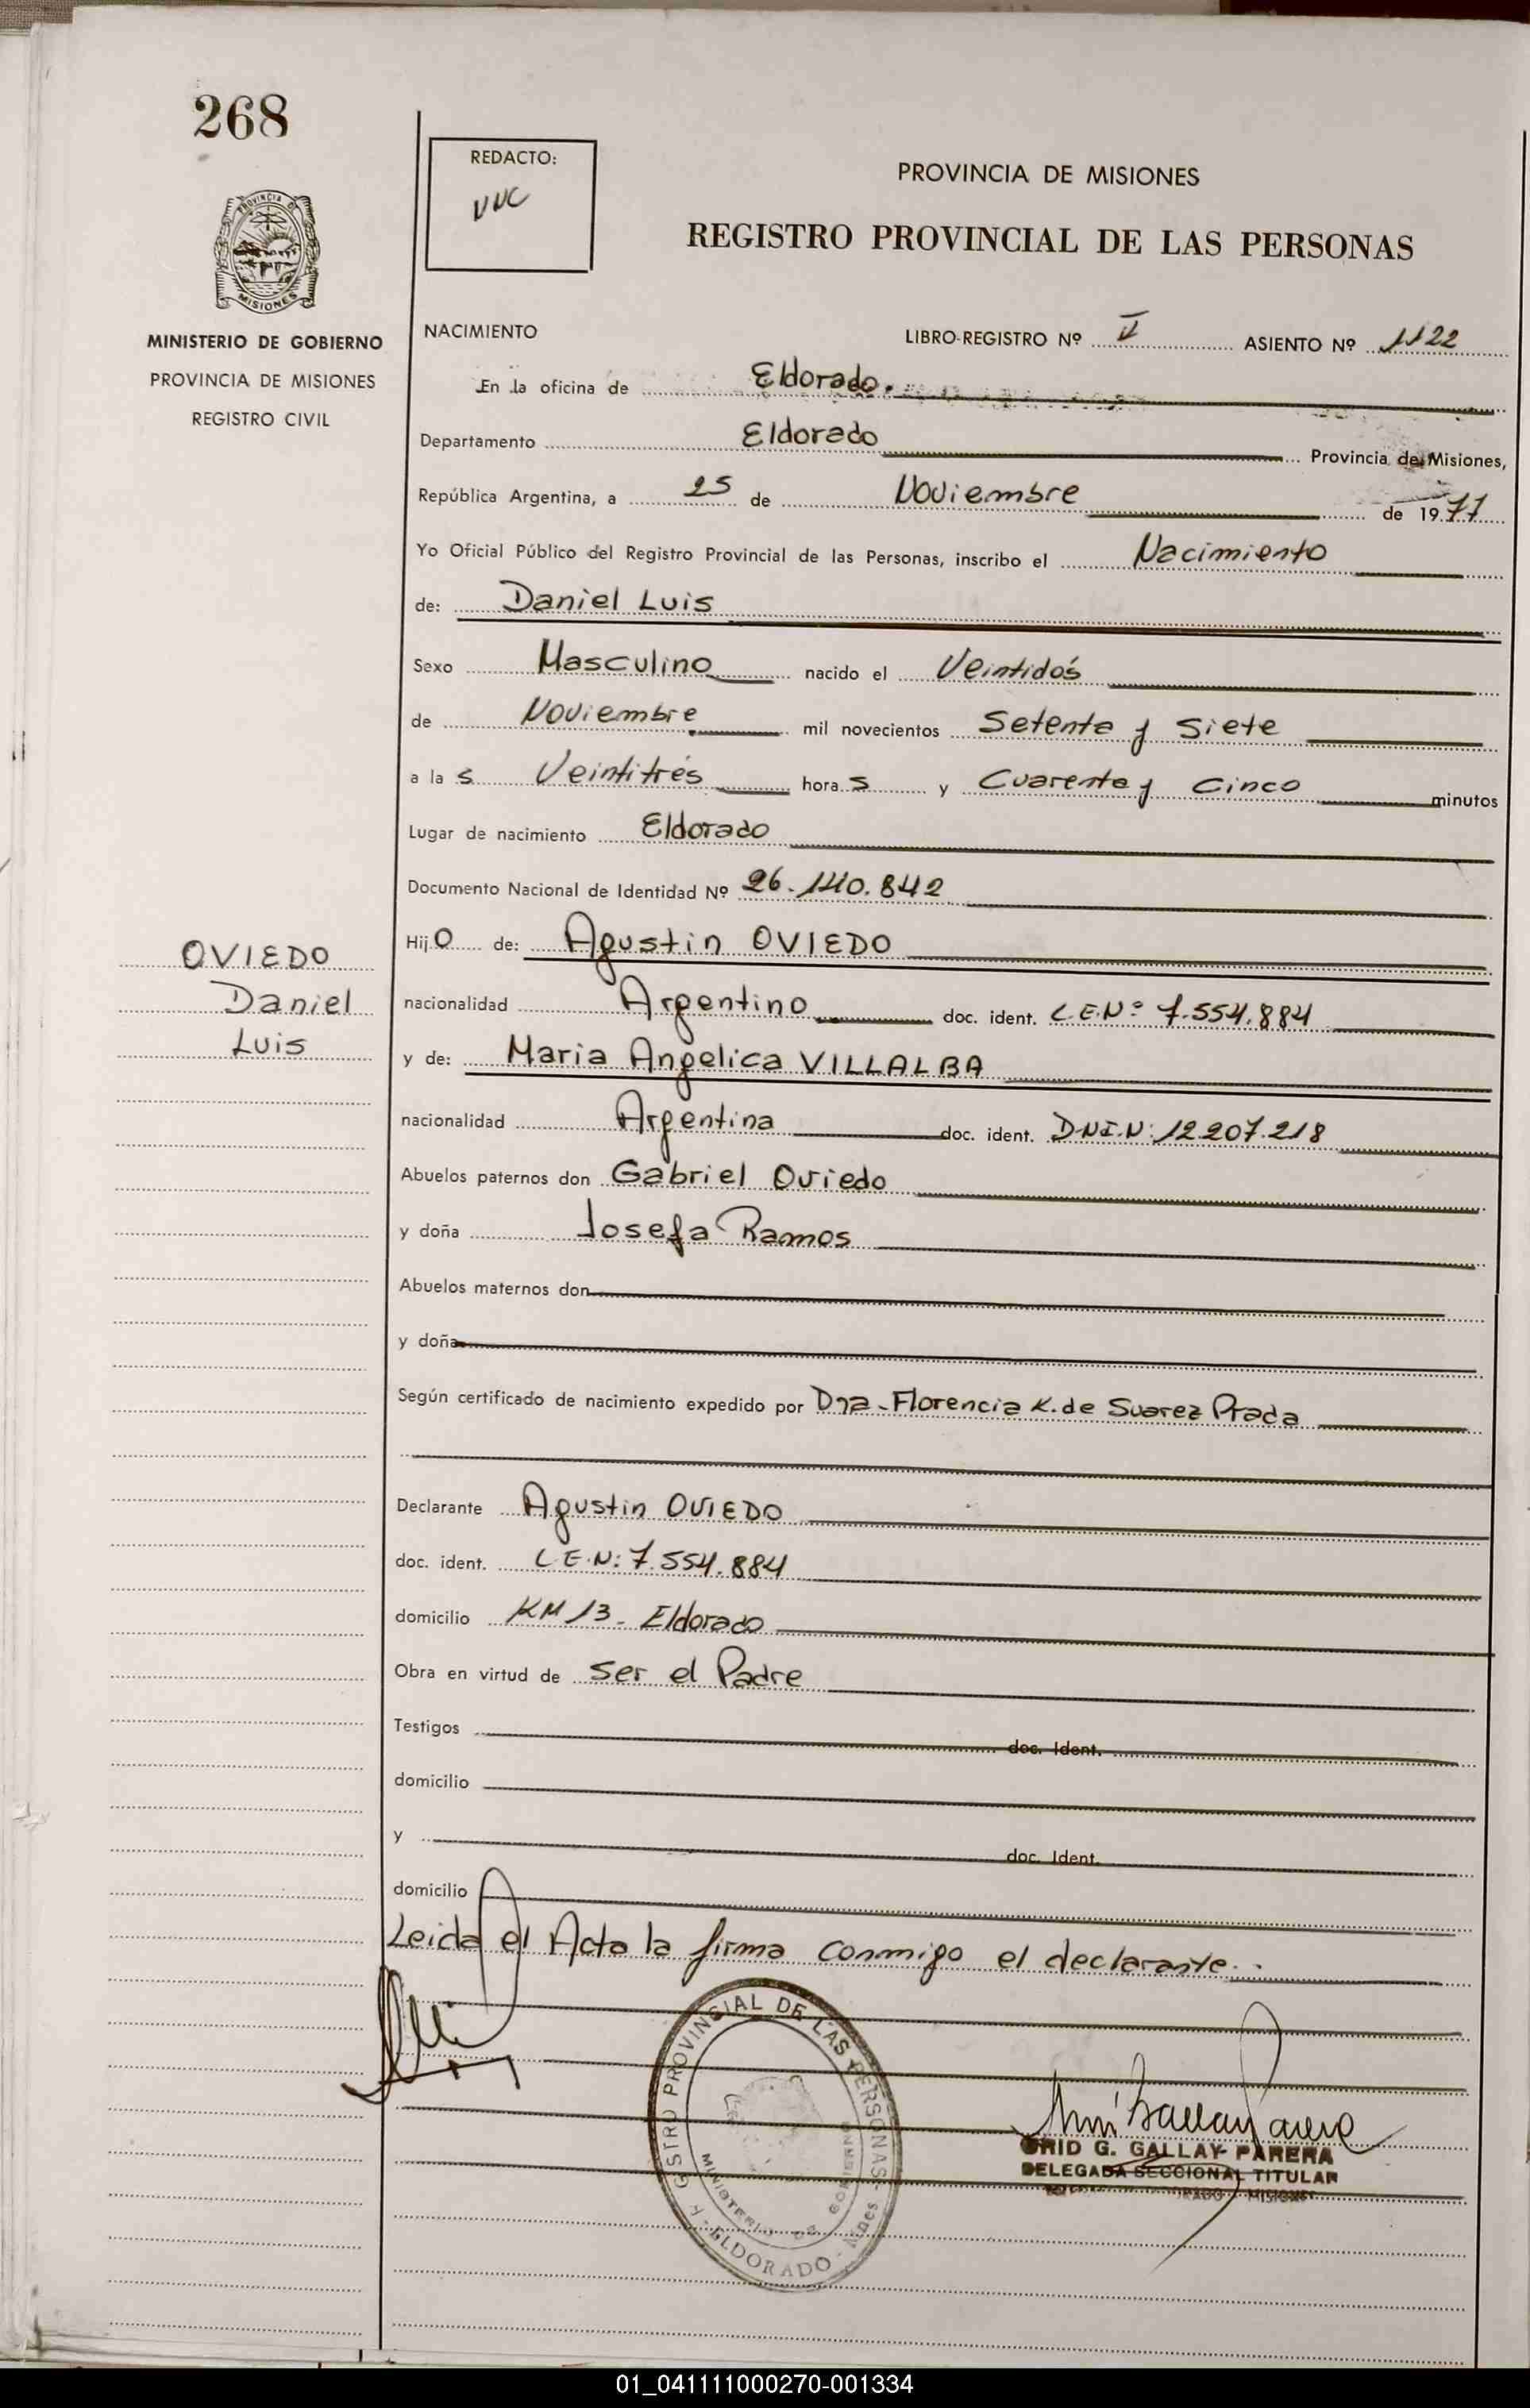 268
PROVINCIA D MISIONES
MINISTERIO DE GOBIERNO
PROVINCIA DE MISIONES
REGISTRO CIVIL
OVIEDO
Daniel
Luis
REDACTO:
PROVINCIA DE MISIONES
REGISTRO PROVINCIAL DE LAS PERSONAS
NACIMIENTO LIBRO-REGISTRO Nº II ASIENTO Nº 1122
En la oficina de Eldorado.
Departamento Eldorado Provincia de Misiones,
República Argentina, a 25 de Noviembre de 1977
Yo Oficial Público del Registro Provincial de las Personas, inscribo el Nacimiento
de: Daniel Luis
Sexo Masculino nacido el Veintidós
de Noviembre mil novecientos Setenta y Siete
a la s Veintitrés hora s y Cuarenta y Cinco minutos
Lugar de nacimiento Eldorado
Documento Nacional de Identidad Nº 26.140.842
Hij o de: Agustin OVIEDO
nacionalidad Argentino doc. ident. L.E.Nº 7.554.884
y de: Maria Angelica VILLALBA
nacionalidad Argentina doc. ident. D.N.I.N: 12.207.218
Abuelos paternos don Gabriel Oviedo
y doña Josefa Ramos
Abuelos maternos don
y doña
Según certificado de nacimiento expedido por Dra. Florencia K. de Suarez Prada
Declarante Agustin OVIEDO
doc. ident. L.E.N: 7.554.884
domicilio KM 13 - Eldorado
Obra en virtud de ser el Padre
Testigos doc. Ident.
domicilio
y doc. Ident.
domicilio
Leida el Acta la firma conmigo el declarante.
PROVINCIAL DE LAS PERSONAS
MINISTERIO DE GOBIERNO
ELDORADO - Mnes
G. GALLAY PARERA
DELEGADA SECCIONAL TITULAR
MISIONES
01_041111000270-001334